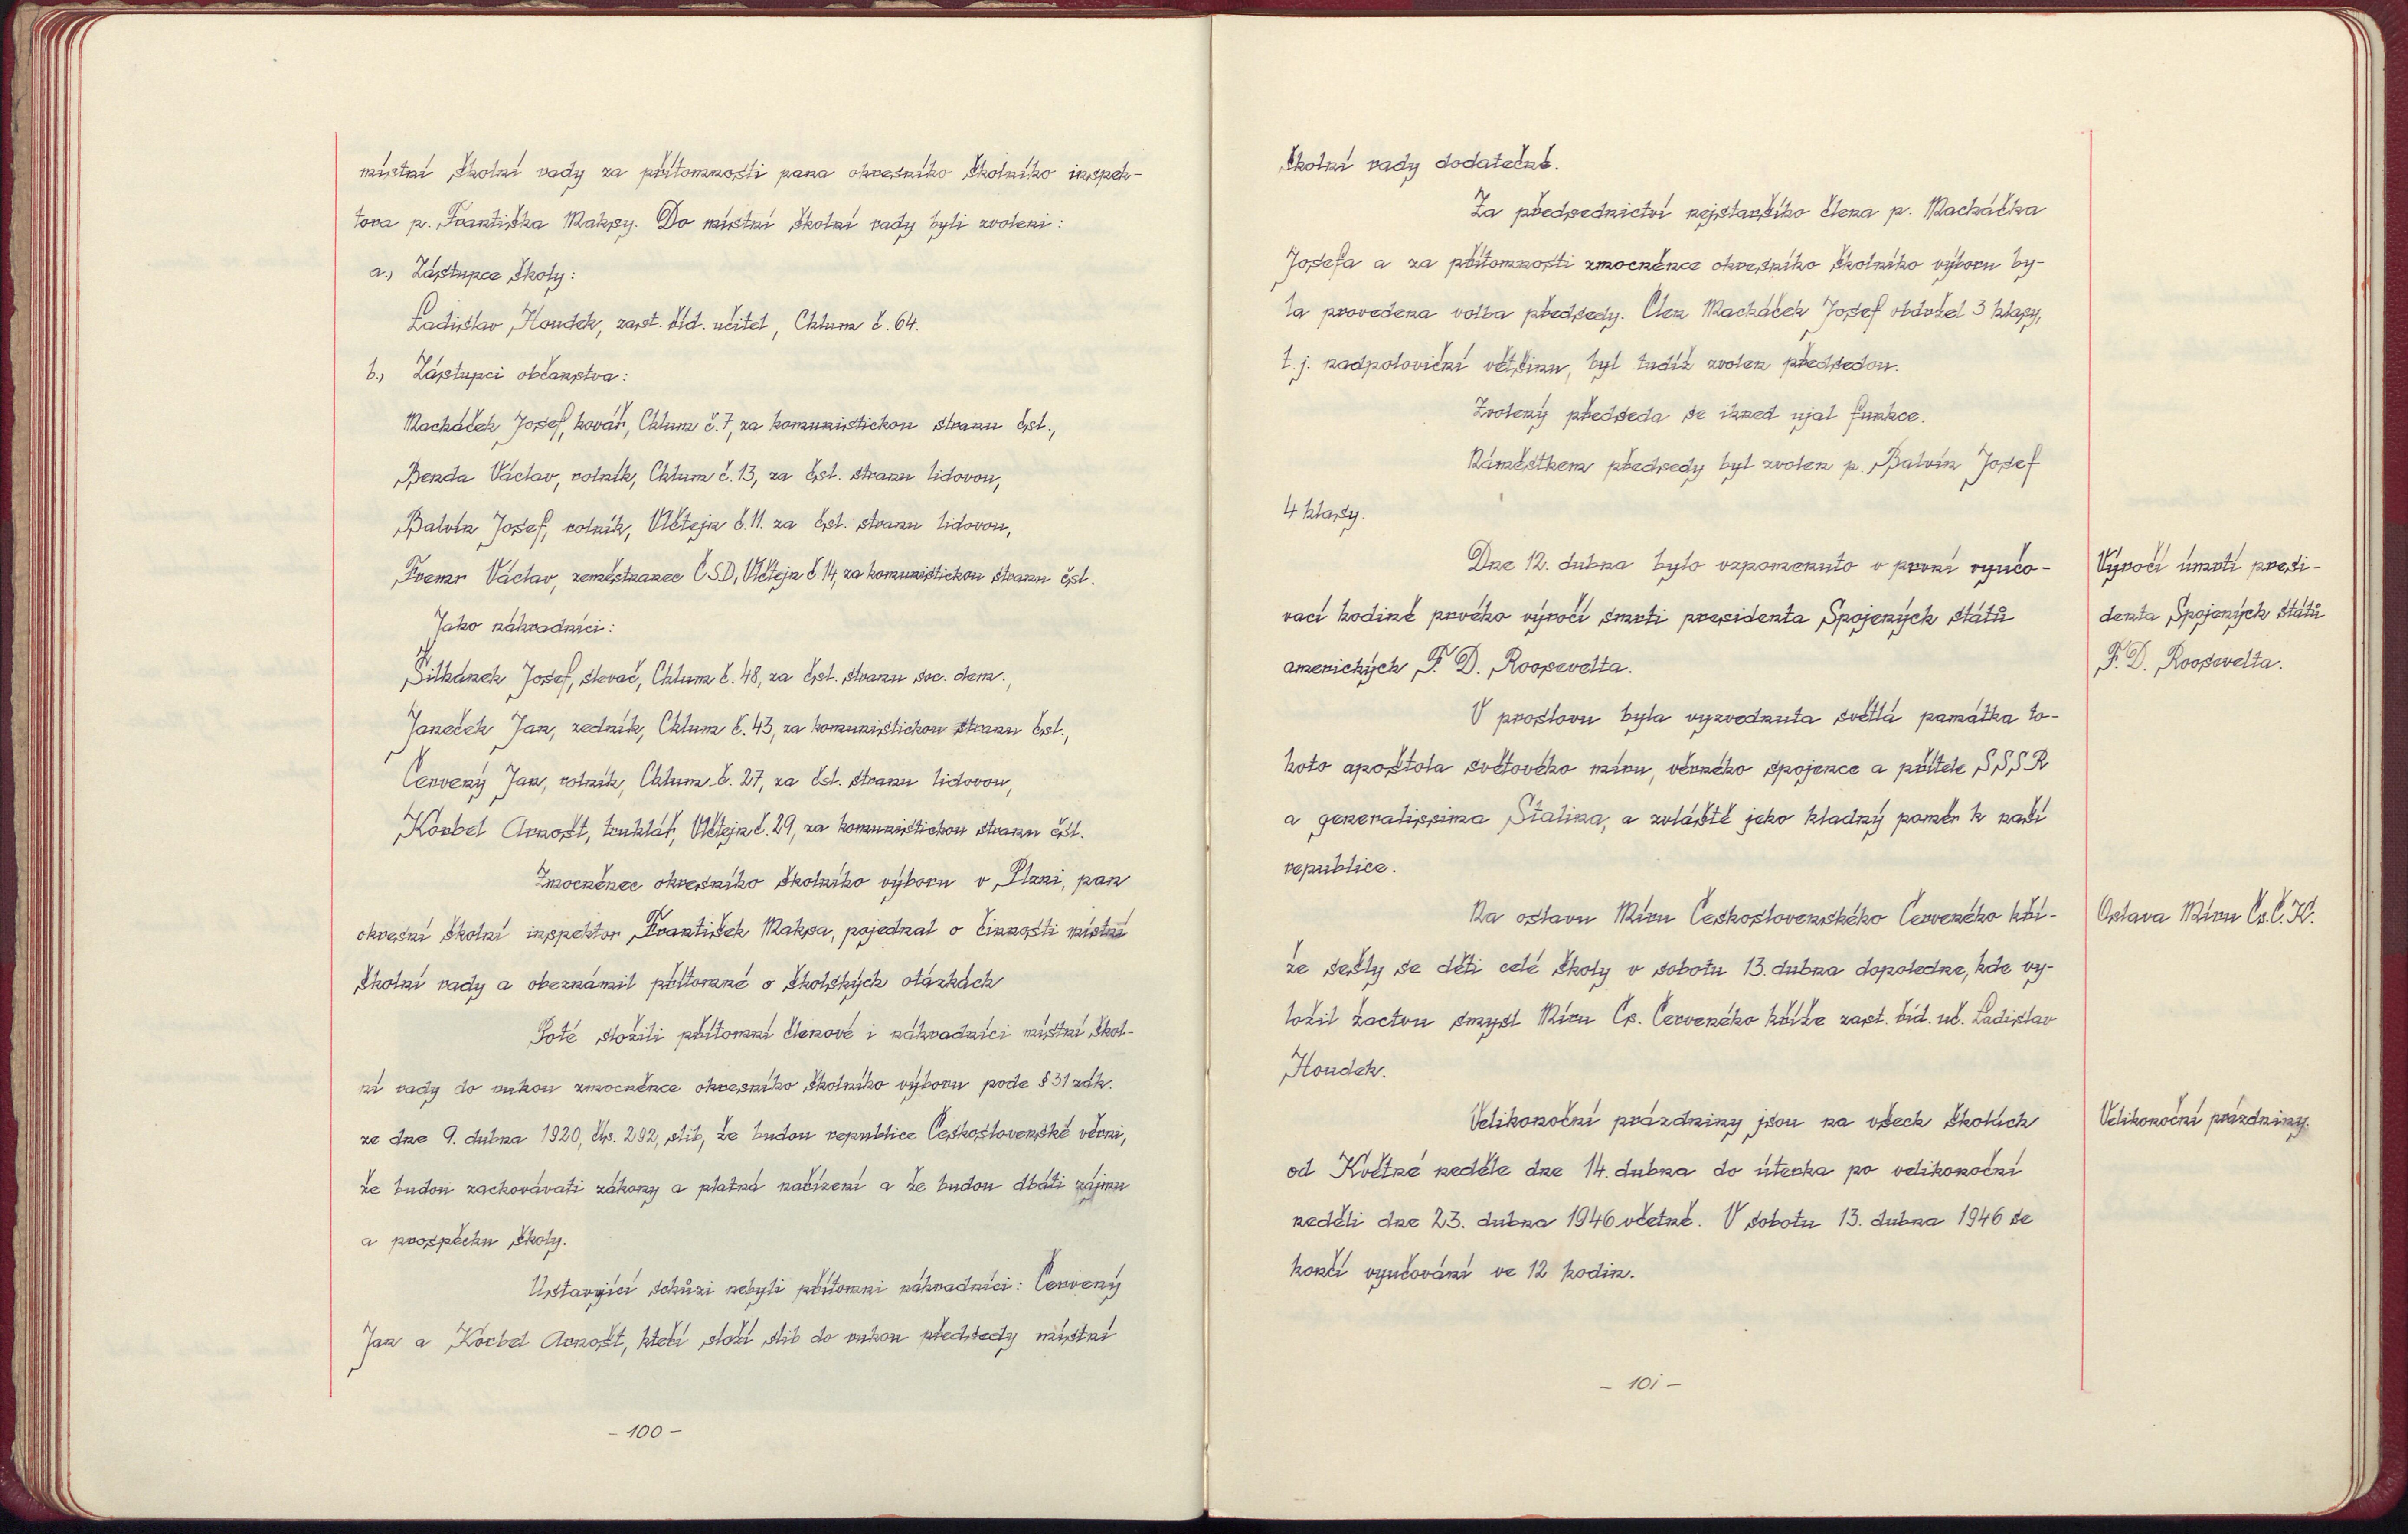 místní školní rady za přítomnosti pana okresního školního inspek-
tora p. Františka Maksy. Do místní školní rady byli zvoleni:
a.) Zástupce školy:
Ladislav Houdek, zast. říd. učitel, Chlum č. 64.
b.) Zástupci občanstva:
Macháček Josef, kovář, Chlum č. 7, za komunistickou stranu čsl.,
Benda Václav, rolník, Chlum č. 13, za čsl. stranu lidovou,
Balvín Josef, rolník, Vlčtejn č. 11. za čsl. stranu lidovou,
Fremr Václav, zeměstnanec ČSD, Vlčtejn č. 14, za komunistickou stranu čsl.
Jako náhradníci:
Šilhánek Josef, slevač, Chlum č. 48, za čsl. stranu soc. dem.,
Janeček Jan, zedník, Chlum č. 43, za komunistickou stranu čsl.,
Červený Jan, rolník, Chlum č. 27, za čsl. stranu lidovou,
Korbel Arnošt, truhlář, Vlčtejn č. 29, za komunistickou stranu čsl.
Zmocněnec okresního školního výboru v Plzni, pan
okresní školní inspektor František Maksa, pojednal o činnosti místní
školní rady a obeznámil přítomné o školských otázkách
Poté složili přítomní členové i náhradníci místní škol-
ní rady do rukou zmocněnce okresního školního výboru pode § 31 zák.
ze dne 9. dubna 1920, čís. 292, slib, že budou republice Československé věrni,
že budou zachovávati zákony a platná nařízení a že budou dbáti zájmu
a prospěchu školy.
Ustavující schůzi nebyli přítomni náhradníci: Červený
Jan a Korbel Arnošt, kteří složí slib do rukou předsedy místní
- 100 -
školní rady dodatečně.
Za předsednictví nejstaršího člena p. Macháčka
Josefa a za přítomnosti zmocněnce okresního školního výboru by-
la provedena volba předsedy. Člen Macháček Josef obdržel 3 hlasy,
t. j. nadpoloviční většinu, byl tudíž zvolen předsedou.
Zvolený předseda se ihned ujal funkce.
Náměstkem předsedy byl zvolen p. Balvín Josef
4 hlasy.
Dne 12. dubna bylo vzpomenuto v první vyučo-
vací hodině prvého výročí smrti presidenta Spojených států
amerických F. D. Roosevelta.
Výročí úmrtí presi-
denta Spojených států
F. D. Roosevelta.
V proslovu byla vyzvednuta světlá památka to-
hoto apoštola světového míru, věrného spojence a přítele SSSR
a generalissima Stalina, a zvláště jeho kladný poměr k naší
republice.
Na oslavu Míru Československého Červeného kří-
že sešly se děti celé školy v sobotu 13. dubna dopoledne, kde vy-
ložil žactvu smysl Míru Čs. Červeného kříže zast. říd. uč. Ladislav
Houdek.
Oslava Míru Čs. Č. K.
Velikonoční prázdniny jsou na všech školách
od Květné neděle dne 14. dubna do úterka po velikonoční
neděli dne 23. dubna 1946 včetně. V sobotu 13. dubna 1946 se
končí vyučování ve 12 hodin.
Velikonoční prázdniny.
- 101 -